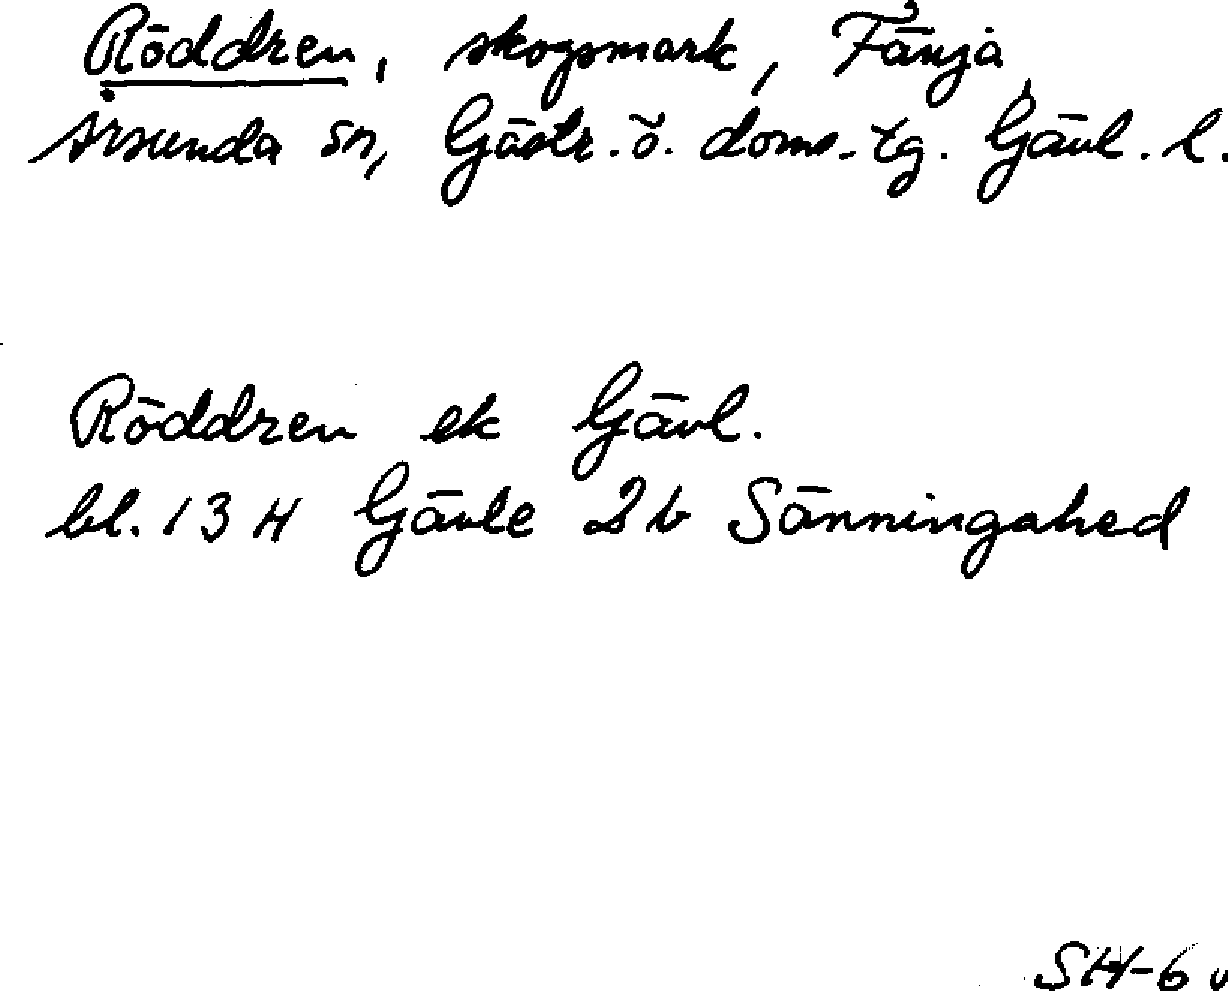 Röddren, skogsmark, Fänja
Årsunda sn, Gästr. ö. doms. tg. Gävl. l.
Röddren ek Gävl.
bl. 13 H Gävle 2b Sänningahed
SH-6